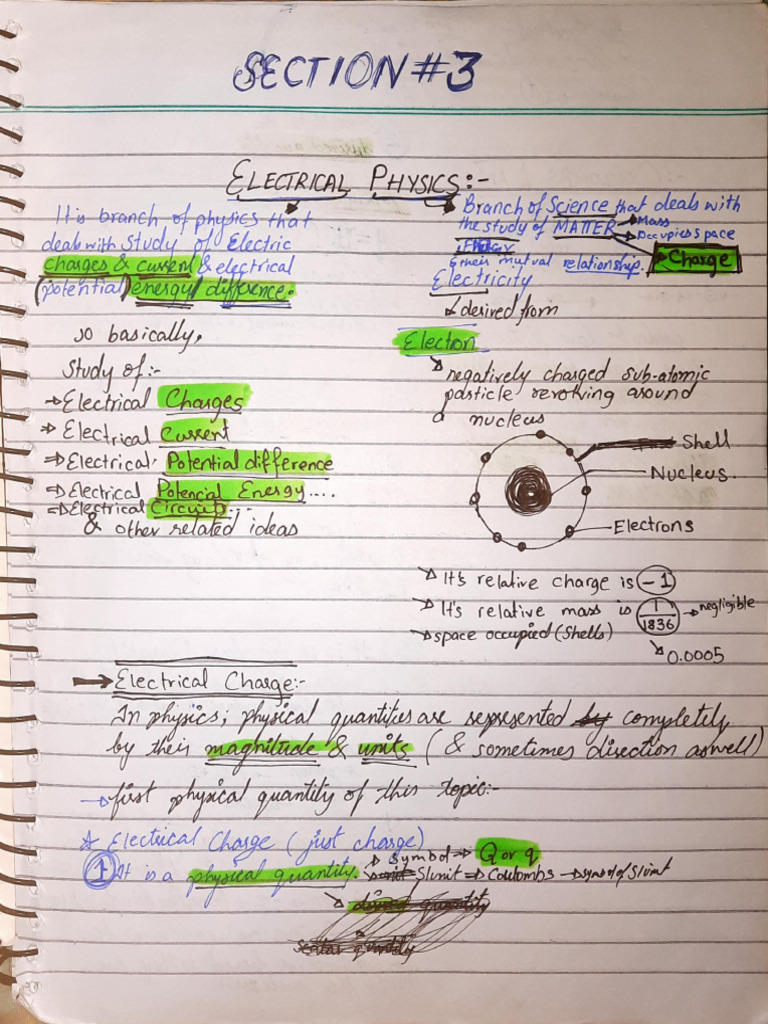 SECTION #3
ELECTRICAL PHYSICS:-
It is branch of physics that
deals with study of Electric
charges & current & electrical
(potential) energy/difference.
Branch of Science that deals with
the study of MATTER → Mass
→ Occupies space
→ Charge
& their mutual relationship.
Electricity
↳ derived from
Election
↳ negatively charged sub-atomic
particle revolving around
a nucleus
so basically,
study of:-
→ Electrical Charges
→ Electrical Current
⇒ Electrical Potential difference
⇒ Electrical Potencial Energy....
⇒ Electrical Circuits...
& other related ideas
Shell
Nucleus.
Electrons
↳ It's relative charge is -1
↳ It's relative mass is 1/1836 → negligible
↳ 0.0005
↳ space occupied (shells)
→ Electrical Charge:-
In physics; physical quantities are represented by completely
by their magnitude & units (& sometimes direction aswell)
→ first physical quantity of this topic:-
☆ Electrical Charge (just charge)
① It is a physical quantity. → symbol ⇒ Q or q
→ unit SI unit ⇒ Coulombs → symbol of SI unit
→ derived quantity
quantity